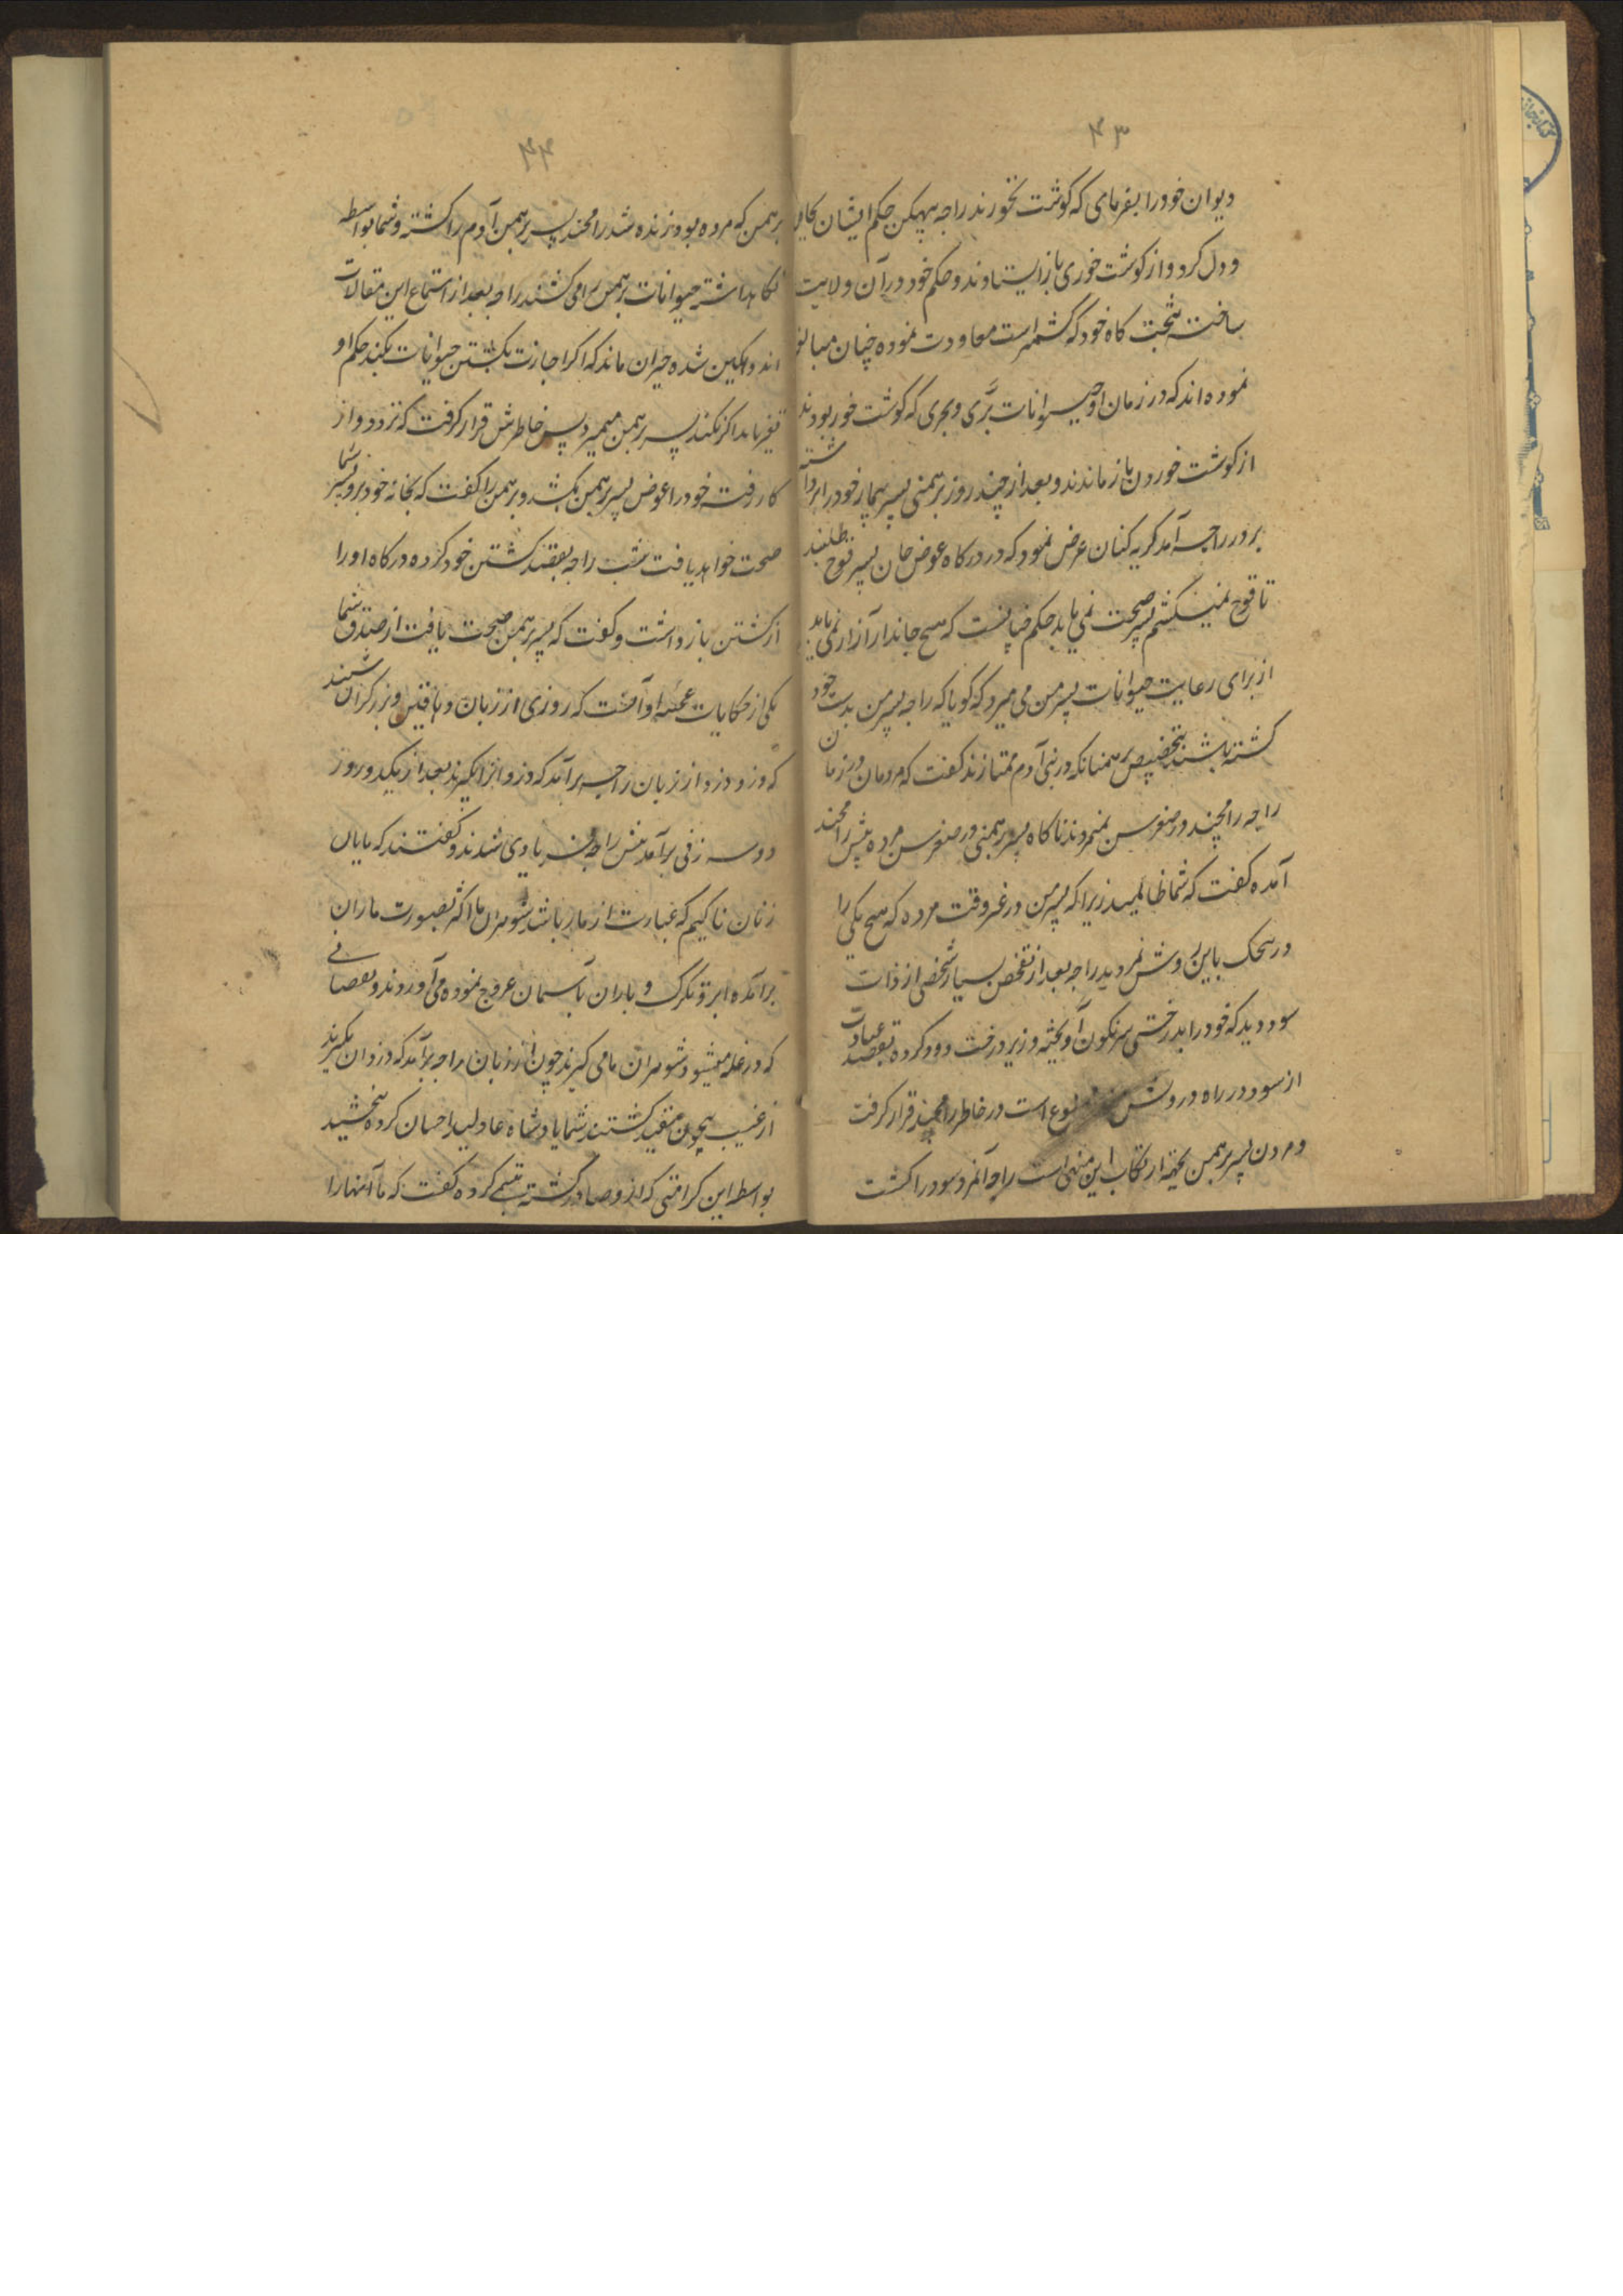 ۴۳
دیوان خود را بفرمای که گوشت نخورند راجه بهیکن حکم ایشان بجای
و دل کرد و از گوشت خوری باز ایستادند و حکم خود در آن ولایت
ساخت بتخت کاه خود که کشمیر است معاودت نموده چنان مبالغه
نموده اند که در زمان او حیوانات برّی و بحری که گوشت خور بودند
از گوشت خوردن باز ماندند و بعد از چند روز برهمنی پسر بیمار خود را برداشته
بر در راجه آمد گریه کنان عرض نمود که در درگاه عوض جان پسر قوچ طلبند
تا قوچ نمیکشم پسر صحت نمی یابد حکم چنانست که هیچ جاندار آزار نمی یابد
از برای رعایت حیوانات پسر من می میرد که گویا که راجه پسر من بدست خود
کشته باشند بتخصیص برهمنانکه در بنی آدم ممتازند گفت که مردمان در زمان
راجه رامچند در صغر سن نمیمردند ناگاه پسر برهمنی در صغر سن مرده پیش رامچند
آمده گفت که شما ظالمید زیرا که پسر من در غیر وقت مرده که هیچ یکی را
در ... باین روش نمردید راجه بعد از تفحص بسیار شخصی از ذات
سود دید که خود را بدرختی سرنگون آویخته و زیر درخت دود کرده بقصد عبادت
از سود در راه و روش ... است در خاطر رامچند قرار گرفت
و مردن پسر برهمن بجهته ارتکاب این منهی است راجه آنمرد سود را کشت
۴۴
برهمن که مرده بود زنده شد رامچند پسر برهمن آدم را کشته و شما بواسطه
نگاهداشته حیوانات برهمن را می کشند راجه بعد از استماع این مقالات
اندوهگین شده حیران ماند که اگر اجازت بکشتن حیوانات بکند حکم او
تغیر یابد اگر نکند پسر برهمن میمیرد پس خاطرش قرار گرفت که نزد دواز
کار رفته خود را عوض پسر برهمن بکشد و برهمن را گفت که بخانه خود برو پسر شما
صحت خواهد یافت شب راجه بقصد کشتن خود کرده درگاه او را
از کشتن باز داشت و گفت که پسر برهمن صحت یافت از صدق شما
یکی از حکایات عجیبه او آنست که روزی از زبان دهاقین و زرگران شنید
که دزد دزد از زبان راجه برآمد که دزد را بگیرند بعد از یکدو روز
دو سه زنی برآمد پیش راجه فریادی شدند و گفتند که مایان
زنان ناگیم که عبارت از مار باشد شوهران ما اکثر بصورت ماران
برآمده ابر و تگرگ و باران بآسمان عروج نموده می آوردند و نقصانی
که در غله میشود شوهران ما می گیرند چون از زبان راجه برآمد که دزدان بگیرند
از غیب بیچون مقید گشتند شما پادشاه عادلید احسان کرده بخشید
بواسطه این کرامتی که ازو صادر گشته تبسمی کرده گفت که ما آنها را